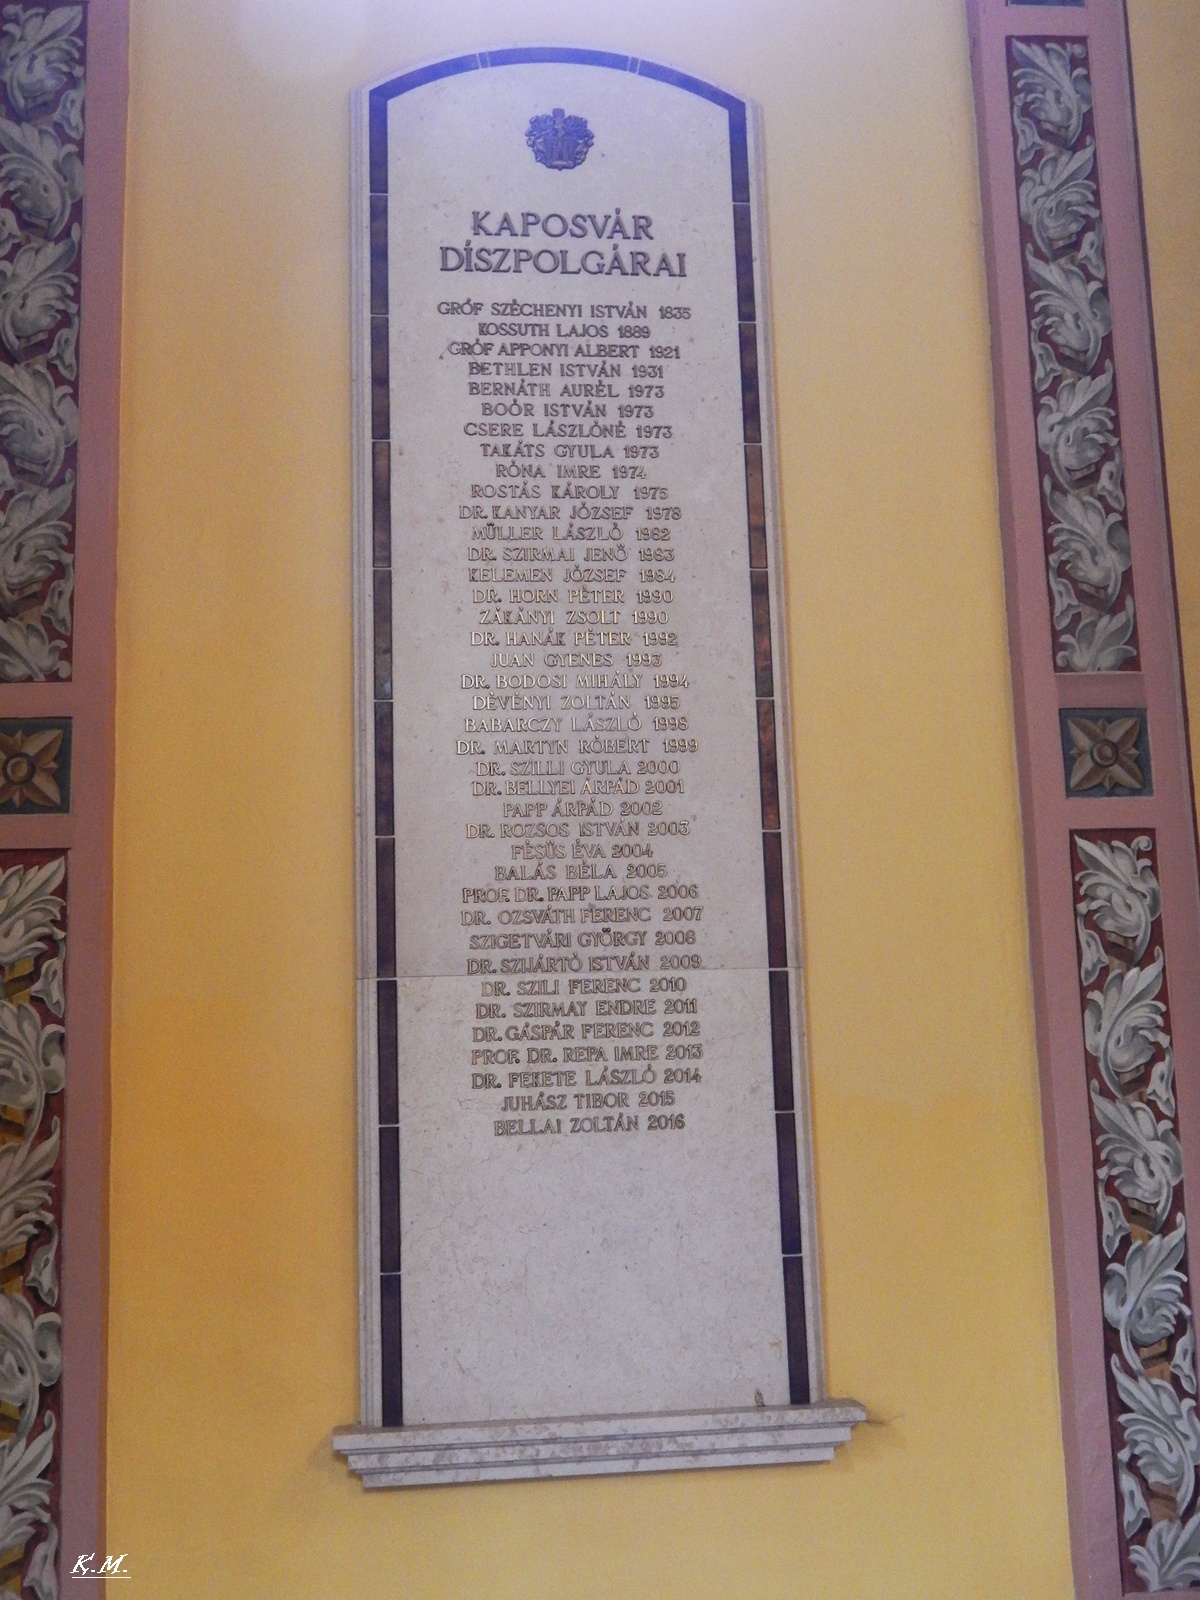 KAPOSVÁR
DÍSZPOLGÁRAI
GRÓF SZÉCHENYI ISTVÁN 1835
KOSSUTH LAJOS 1889
GRÓF APPONYI ALBERT 1921
BETHLEN ISTVÁN 1931
BERNÁTH AURÉL 1973
BOÓR ISTVÁN 1973
CSERE LÁSZLÓNÉ 1973
TAKÁTS GYULA 1973
RÓNA IMRE 1974
ROSTÁS KÁROLY 1975
DR. KANYAR JÓZSEF 1978
MÜLLER LÁSZLÓ 1982
DR. SZIRMAI JENŐ 1983
KELEMEN JÓZSEF 1984
DR. HORN PÉTER 1990
ZÁKÁNYI ZSOLT 1990
DR. HANÁK PÉTER 1992
JUAN GYENES 1993
DR. BODOSI MIHÁLY 1994
DÉVÉNYI ZOLTÁN 1995
BABARCZY LÁSZLÓ 1998
DR. MARTYN RÓBERT 1999
DR. SZILLI GYULA 2000
DR. BELLYEI ÁRPÁD 2001
PAPP ÁRPÁD 2002
DR. ROZSOS ISTVÁN 2003
FÉSŰS ÉVA 2004
BALÁS BÉLA 2005
PROF. DR. PAPP LAJOS 2006
DR. OZSVÁTH FERENC 2007
SZIGETVÁRI GYÖRGY 2008
DR. SZIJÁRTÓ ISTVÁN 2009
DR. SZILI FERENC 2010
DR. SZIRMAY ENDRE 2011
DR. GÁSPÁR FERENC 2012
PROF. DR. REPA IMRE 2013
DR. FEKETE LÁSZLÓ 2014
JUHÁSZ TIBOR 2015
BELLAI ZOLTÁN 2016
K.M.